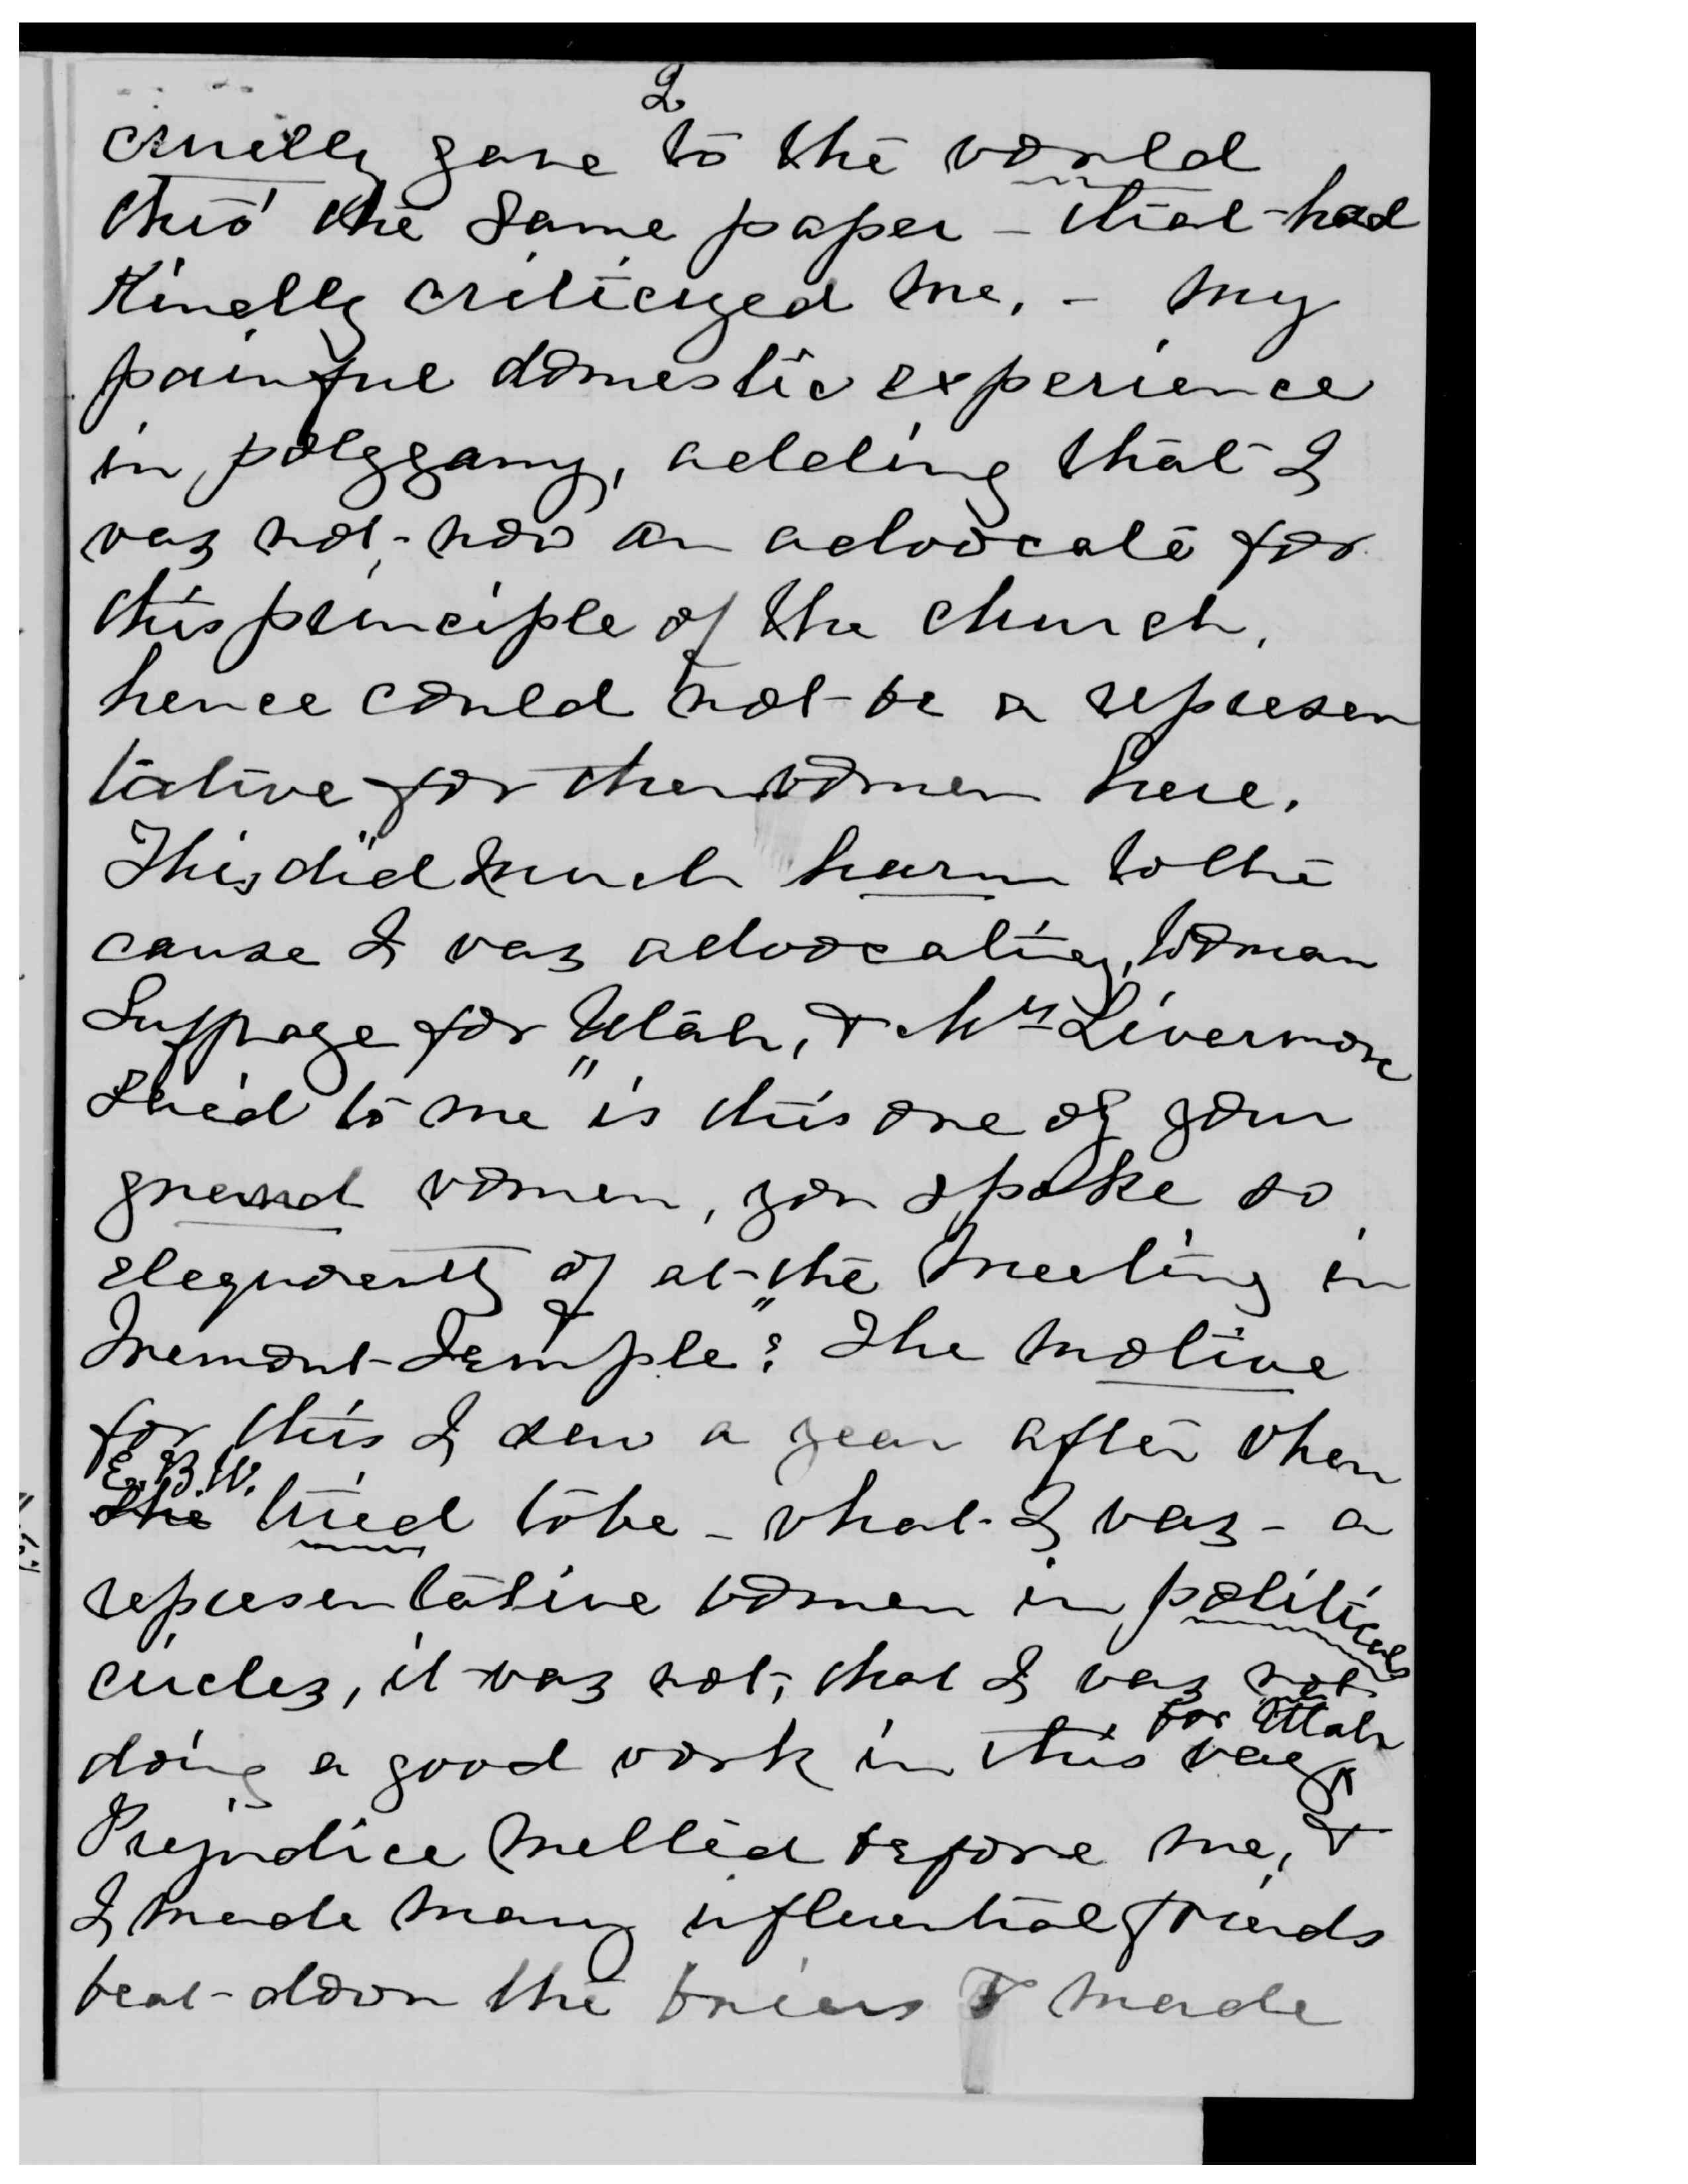 2
cruelly gave to the world
thro' the same paper - that had
kindly criticized me, - my
painful domestic experience
in polygamy, adding that I
was not, now an advocate for
this principle of the church,
hence could not be a represen
tative for the women here.
This did much harm to the
cause I was advocating, Woman
Suffrage for Utah, & Mrs Livermore
said to me "is this one of your
grand women, you spoke so
eloquently of at the meeting in
Tremont Temple"? The motive
for this I saw a year after when
E.B.W.
She tried to be - what I was - a
representative women in political
circles, it was not, that I was not
for Utah
doing a good work in this way
Prejudice melted before me, &
I made many influential friends
beat down the briers & made